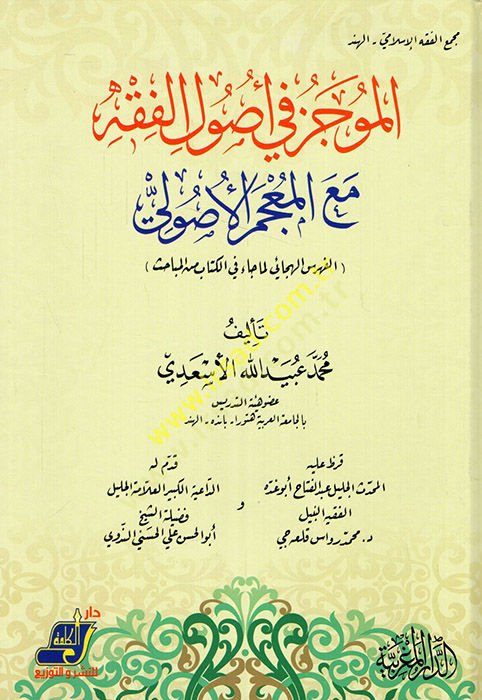 مجمع الفقه الإسلامي - الهند
الموجز في أصول الفقه
مع المعجم الأصولي
( الفهرس الهجائي لما جاء في الكتاب من المباحث )
تأليف
محمد عبيد الله الأسعدي
عضو هيئة التدريس
بالجامعة العربية هتورا - بانده - الهند
قرظ عليه
المحدث الجليل عبد الفتاح أبو غدة
الفقيه النبيل
د. محمد رواس قلعه جي
و
قدم له
الداعية الكبير العلامة الجليل
فضيلة الشيخ
أبو الحسن علي الحسني الندوي
دار
الكلمة
للنشر والتوزيع
الدار المغربية